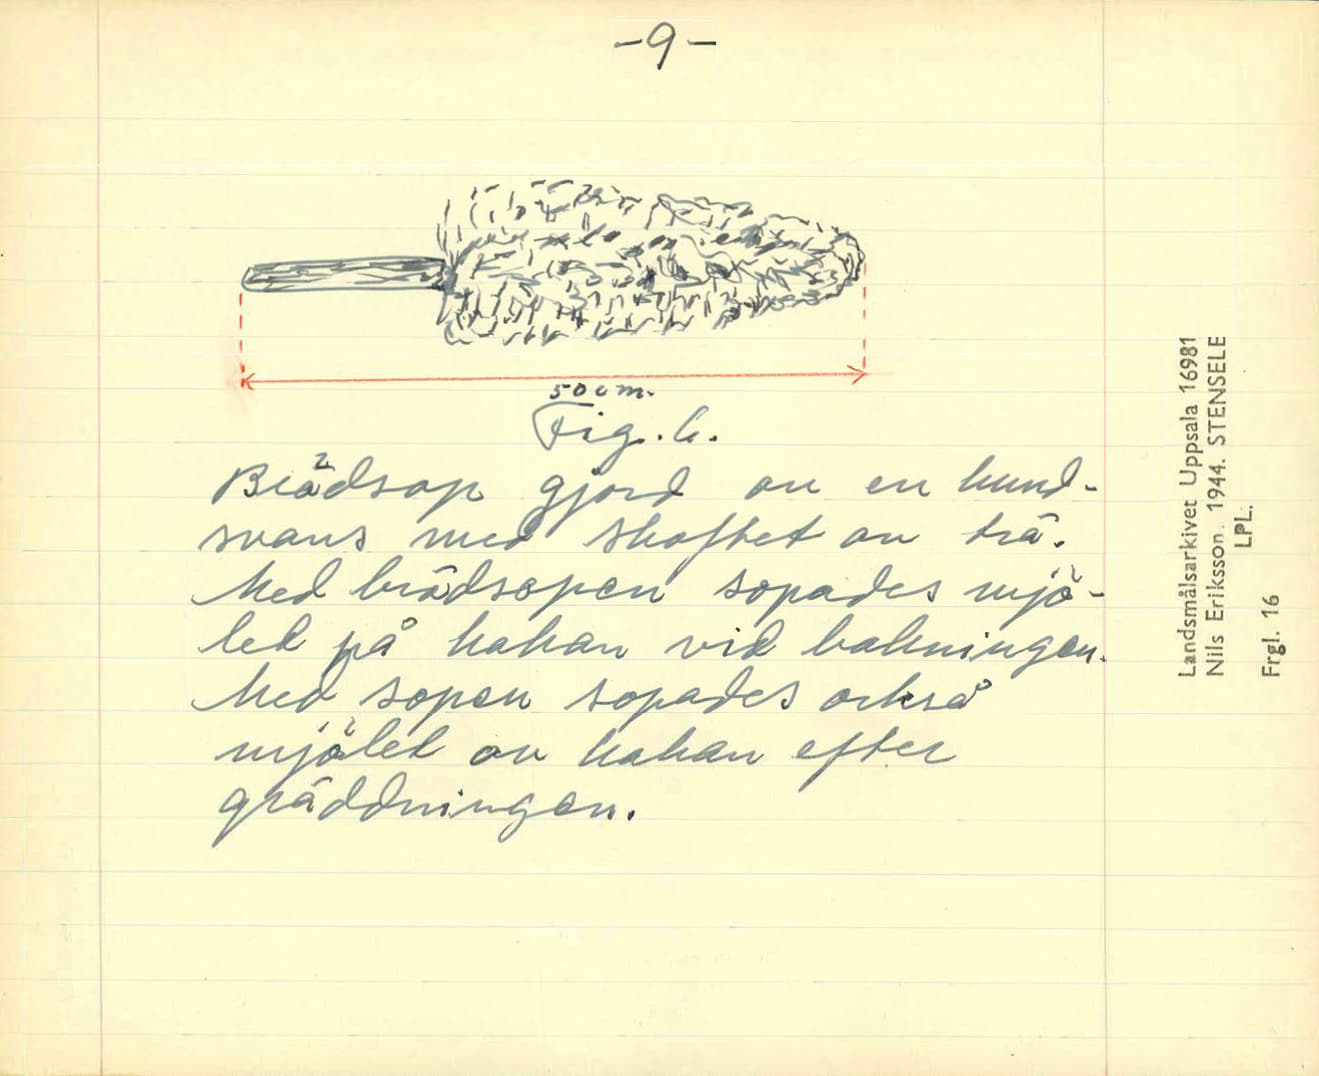 -9-
50 cm.
Fig. 6.
Brädsop gjord av en hund-
svans med skaftet av trä.
Med brädsopen sopades mjö-
let på kakan vid bakningen.
Med sopen sopades också
mjölet av kakan efter
gräddningen.
Landsmålsarkivet Uppsala 16981
Nils Eriksson. 1944. STENSELE
LPL.
Frgl. 16